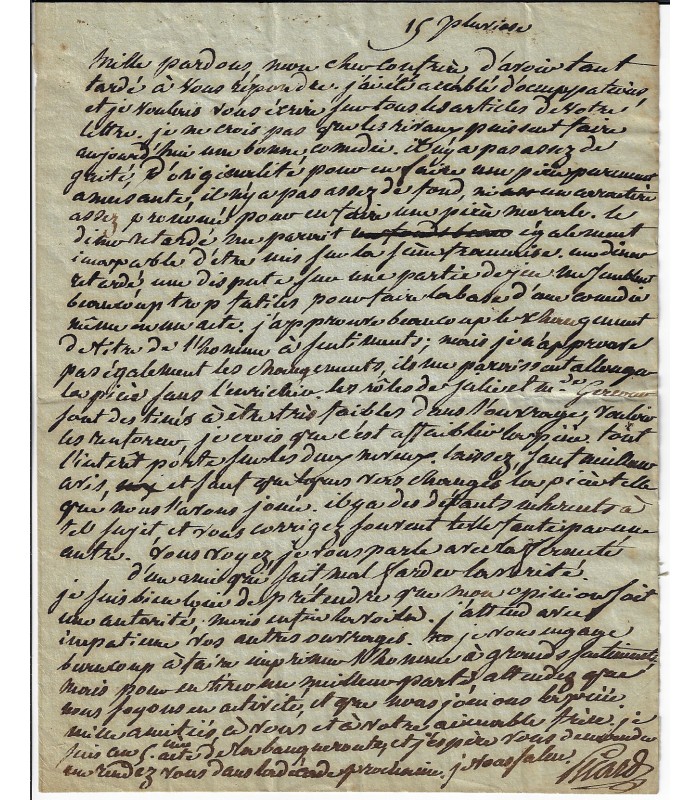 15 pluviose
Mille pardons, mon cher confrère d'avoir tant
tardé à vous répondre. j'ai été accablé d'occupations,
et je voulois vous écrire sur tous les articles de votre
lettre. je ne crois pas que les rivaux puissent faire
aujourd'hui une bonne comédie. il n'y a pas assez de
gaité, d'originalité pour en faire une pièce purement
amusante, il n'y a pas assez de fond, ni un caractère
assez prononcé pour en faire une pièce morale. le
diner retardé me paroit également
incapable d'être mis sur la scène francaise. un diner
retardé une dispute sur une partie de jeu me semblent
beaucoup trop futiles pour faire la base d'une comédie
même en un acte. j'approuve beaucoup le changement
de titre de l'homme à sentiments; mais je n'approuve
pas également les changements, ils me paroissent allonger
la pièce sans l'enrichir. les rôles de et Mde
sont destinés à être très faibles dans l'ouvrage, vouloir
les renforcer je crois que c'est affaiblir la pièce. tout
l'interêt porte sur les deux neveux. laissez, sauf meilleur
avis, et sauf quelques vers changés la pièce telle
que nous l'avons jouée. il y a des défauts inhérents à
tel sujet et vous corrigez souvent telle faute par une
autre. Vous voyez, je vous parle avec la fermeté
d'un ami qui sait mal farder la vérité.
je suis bien loin de prétendre que mon opinion soit
une autorité, mais enfin la voilà. j'attend avec
impatience vos autres ouvrages. je vous engage
beaucoup à faire imprimer l'homme à grands sentiments,
mais pour en tirer un meilleur parti attendez que
nous soyons en activité, et que nous jouions la pièce
mille amitiés à vous et à votre aimable frère. je
suis au 5eme acte de la banqueroute, et j'espère vous demander
un rendez vous dans la décade prochaine. je vous salue.
Picard